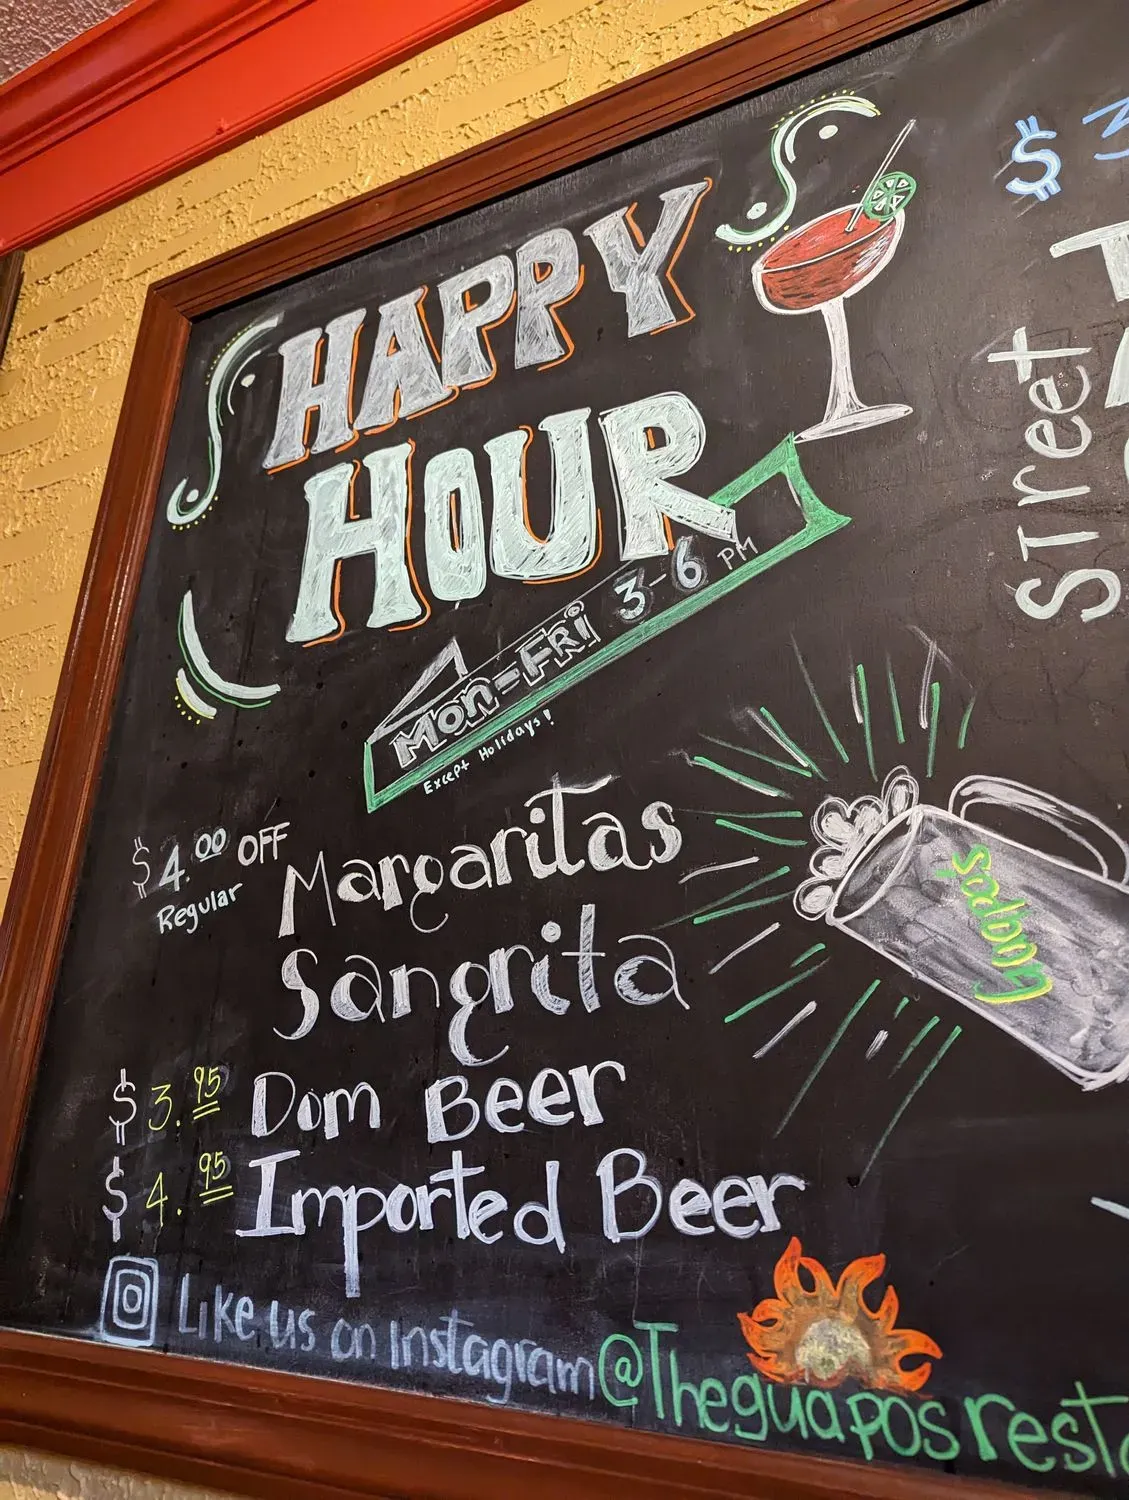 HAPPY
HOUR
Mon-FRi 3-6 PM
Except Holidays!
$4.00 OFF
Regular
Margaritas
Sangrita
$3.95 Dom Beer
$4.95 Imported Beer
Like us on Instagram @Theguaposrest
guapos
$3
Street